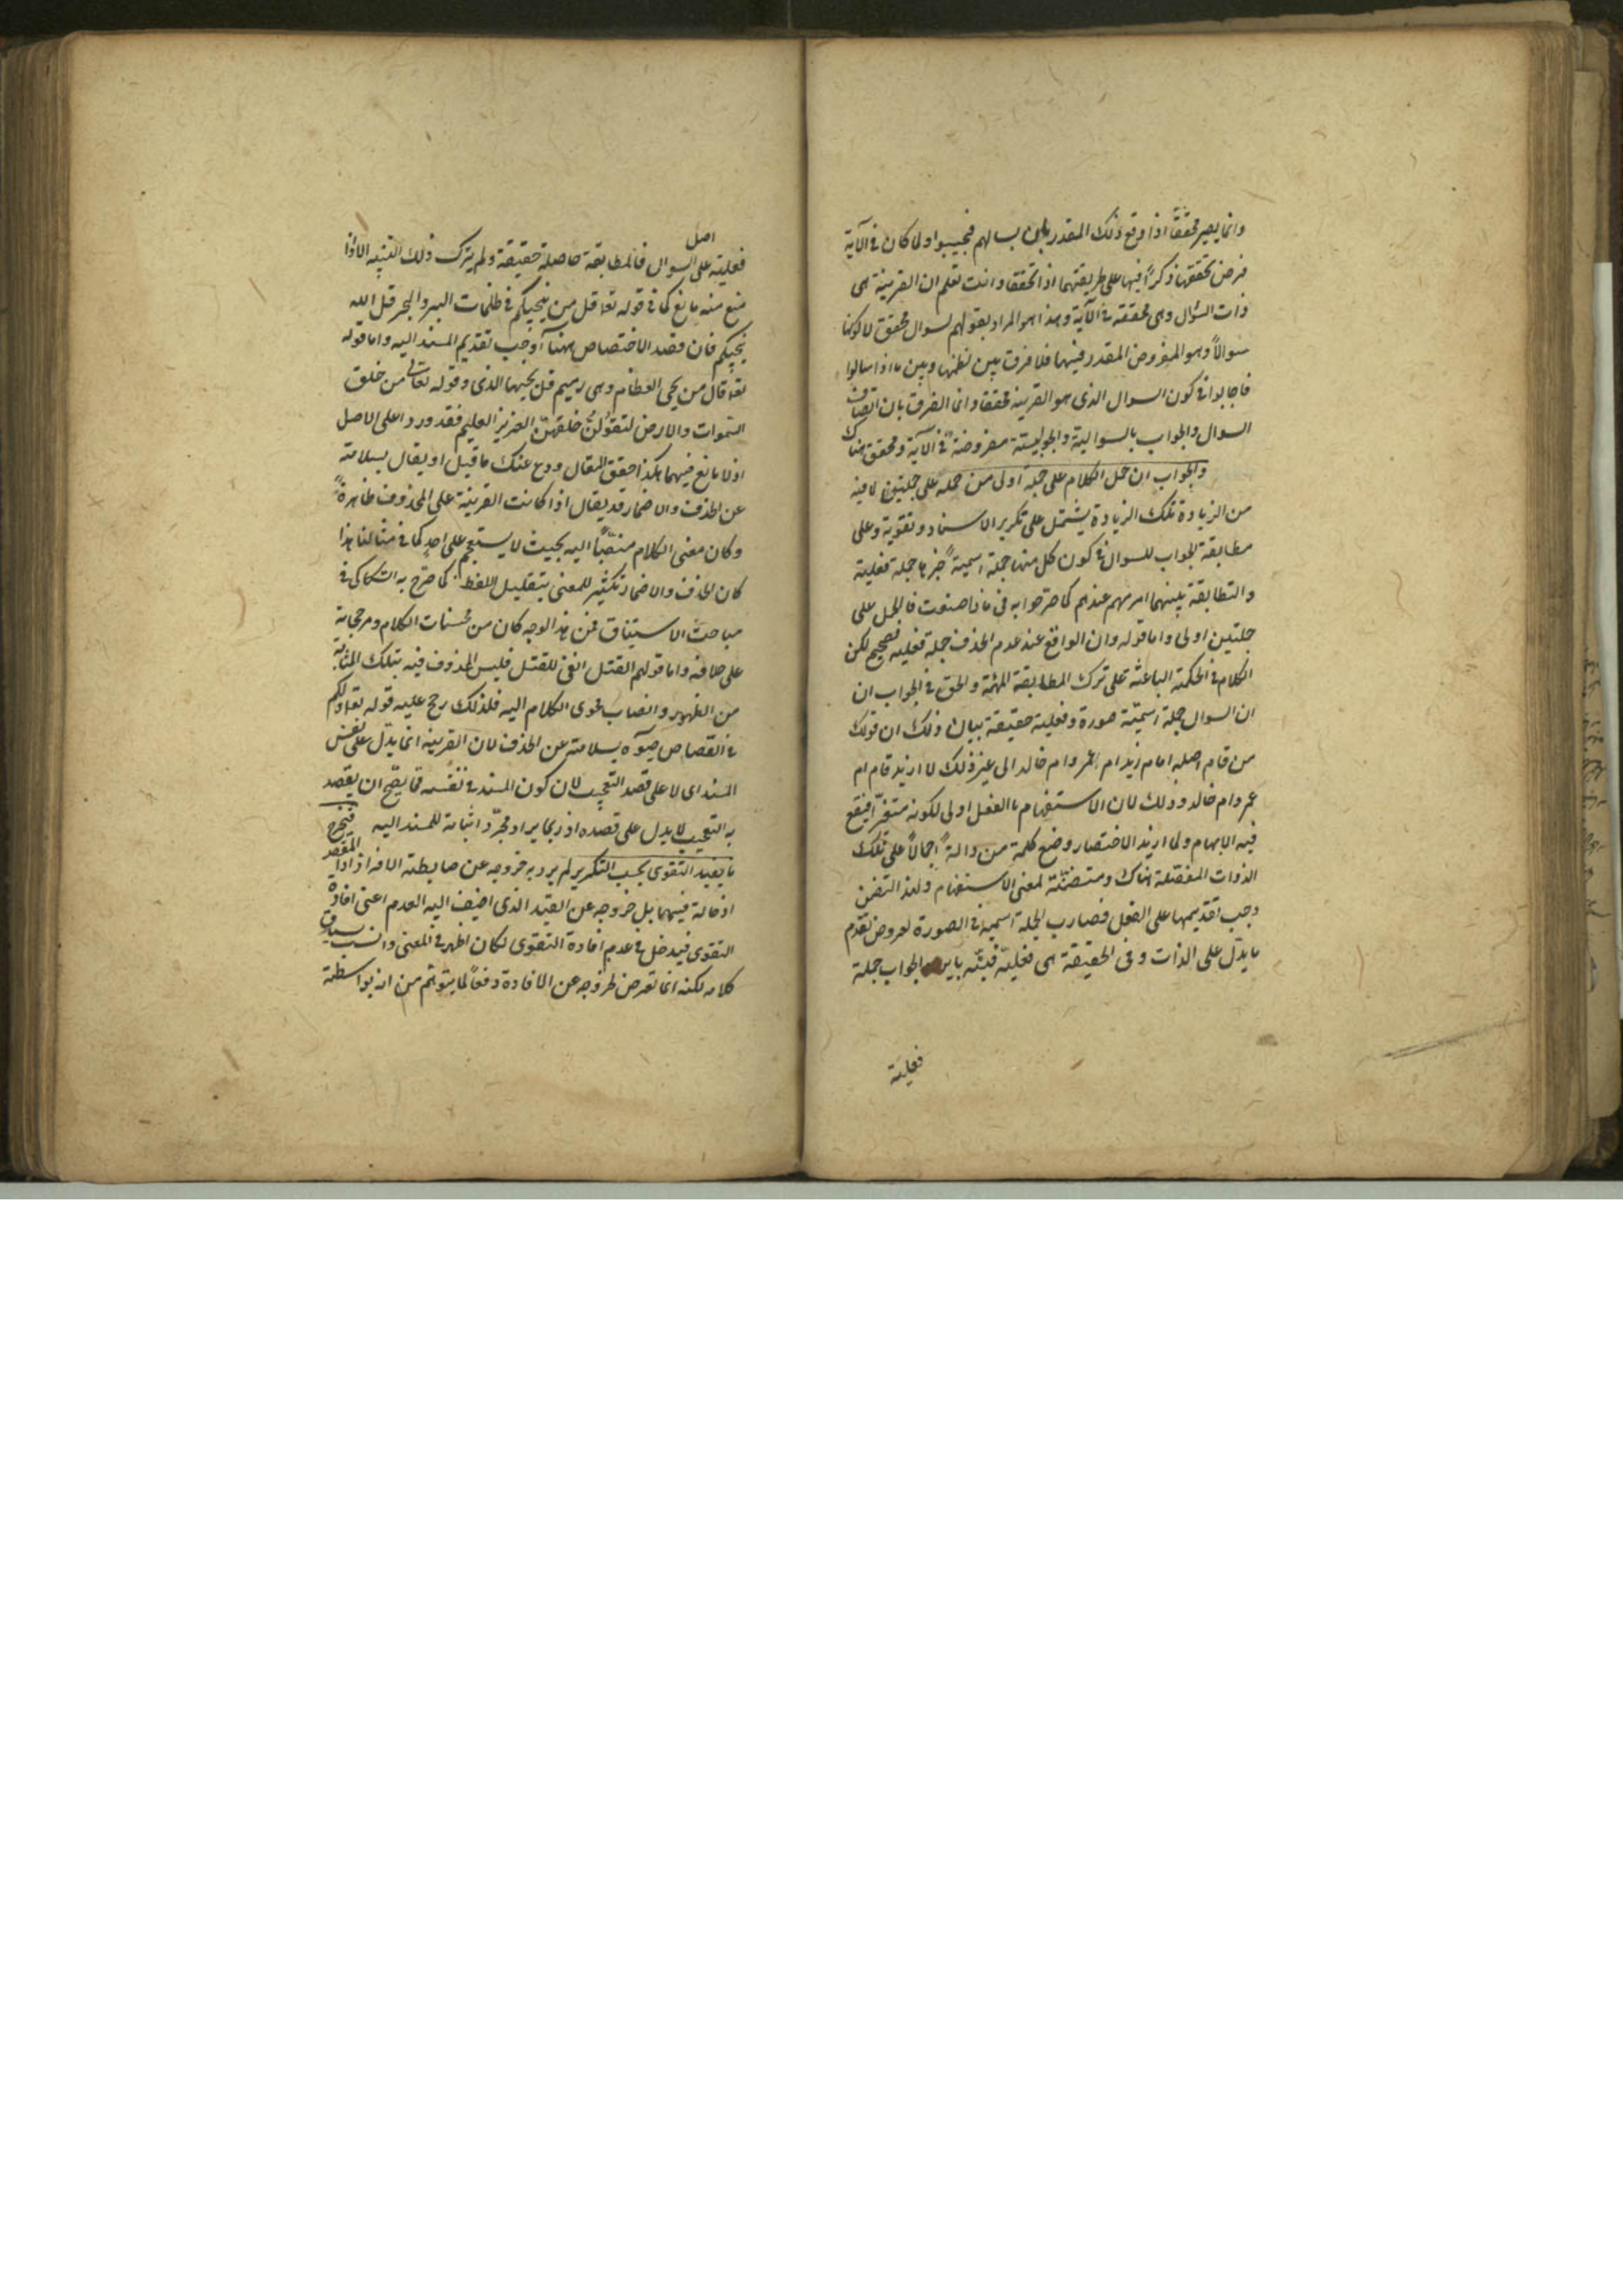 وانما يصير محققا اذا وقع ذلك المقدر بان يسالهم فيجيبوا ولما كان فى الآية
فرض تحققها ذكرا فيها على طريقتهما اذا تحققا وانت تعلم ان القرينة هى
ذات السؤال وهى محققة فى الآية وهذا هو المراد بقولهم لسوال محقق لا كونها
سوالاً وهو المفروض المقدر فيهما فلا فرق بين نظمها وبين ما اذا سالوا
فاجابوا فى كون السوال الذى هو القرينة محققا وانما الفرق بان اتصاف
السوال والجواب بالسوالية والجوابية مفروضة فى الآية ومحقق هناك
والجواب ان حمل الكلام على جملة اولى من حمله على جملتين لا فيه
من الزيادة تلك الزيادة يشتمل على تكرير الاسناد وتقوية وعلى
مطابقة الجواب للسوال فى كون كل منهما جملة اسمية خبرها جملة فعلية
والتطابقة بينهما امر مهم عندهم كما صرحوا به فى ماذا صنعت فالحمل على
جملتين اولى واما قوله وان الواقع عند عدم الحذف جملة فعلية فصحيح لكن
الكلام فى الحكمة الباعثة على ترك المطابقة المهمة والحق فى الجواب ان
ان السوال جملة اسمية صورة وفعلية حقيقة بيان ذلك ان قولك
من قام اصله اقام زيد ام عمرو ام خالد الى غير ذلك لا ازيد قام ام
عمرو ام خالد وذلك لان الاستفهام بالفعل اولى لكونه متغيرا فيقع
فيه الابهام ولما اريد الاختصار وضع كلمة من دالة اجمالاً على تلك
الذوات المفصلة هناك ومتضمنة لمعنى الاستفهام ولهذا التضمن
وجب تقديمها على الفعل فصارت الجملة اسمية فى الصورة لعروض تقدم
ما يدل على الذات وفى الحقيقة هى فعلية فنبه بايراد الجواب جملة
فعلية
فعلية على اصل السوال فالمطابقة حاصلة حقيقة ولم يترك ذلك التنبيه الا اذا
منع منه مانع كما فى قوله تعا قل من ينجيكم فى ظلمات البر والبحر قل الله
ينجيكم فان قصد الاختصاص ههنا اوجب تقديم المسند اليه واما قوله
تعا قال من يحى العظام وهى رميم قل يحييها الذى وقوله تعالى من خلق
السموات والارض ليقولن خلقهن العزيز العليم فقد وردا على الاصل
اذ لا مانع فيهما هكذا حقق المقال ودع عنك ما قيل او يقال بسلامته
عن الحذف والاضمار قد يقال اذا كانت القرينة على المحذوف ظاهرة
وكان معنى الكلام منصبا اليه بحيث لا يستعجم على احد كما فى مثالنا هذا
كان الحذف والاضمار تكثير للمعنى بتقليل اللفظ كما صرح به السكاكى فى
مباحث الاستيناف فمن هذا الوجه كان من محسنات الكلام ومرجحاته
على خلافه واما قولهم القتل انفى للقتل فليس المحذوف فيه بتلك المثابة
من الظهور وانصباب فحوى الكلام اليه فلذلك رجح عليه قوله تعا ولكم
فى القصاص حيوة بسلامته عن الحذف لان القرينة انما يدل على نفس
المسند اى لا على قصد التعجيب لان كون المسند فى نفسه مما يصح ان يقصد
به التعجيب لا يدل على قصده اذ ربما يراد مجرد اثباته للمسند اليه فيخرج
ما يفيد التقوى بحسب التكرير لم يرد به خروجه عن ضابطة الافراد اذ المقصد
ادخاله فيهما بل خروجه عن القيد الذى اضيف اليه العدم اعنى افادة
التقوى فيدخل فى عدم افادة التقوى لكان اظهر فى المعنى وانسب بسياق
كلامه لكنه انما تعرض لخروجه عن الافادة دفعاً لما يتوهم من انه بواسطة